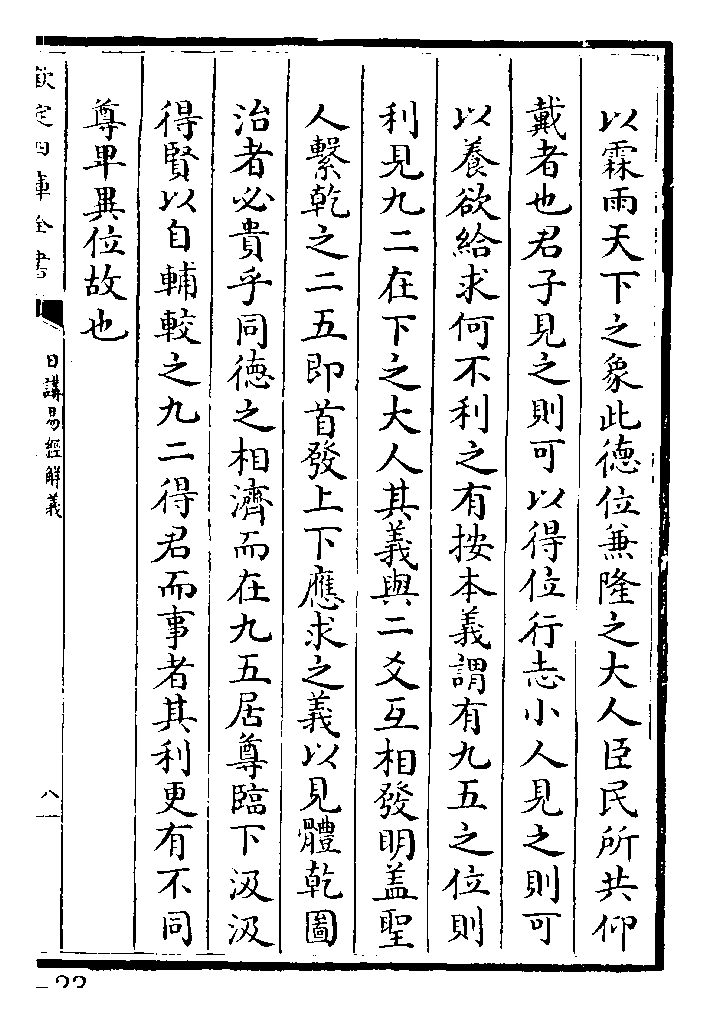 以霖雨天下之象此德位兼隆之大人臣民所共仰
戴者也君子見之則可以得位行志小人見之則可
以養欲給求何不利之有按本義謂有九五之位則
利見九二在下之大人其義與二爻互相發明盖聖
人繫乾之二五即首發上下應求之義以見體乾圖
治者必貴乎同德之相濟而在九五居尊臨下汲汲
得賢以自輔較之九二得君而事者其利更有不同
尊卑異位故也
欽定四庫全書
日講易經解義
八
23